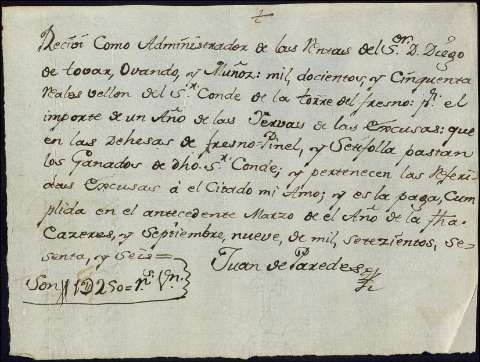 Recivi Como Administrador de las Rentas del S.or D. Diego
de tovar, Ovando, y Muñoz: mil, docientos, y Cinquenta
reales vellon del S.r Conde de la torre del fresno: p.r el
importe de un Año de las Yervas de las Excusas: que
en las Dehesas de fresno Pinel, y Serfolla pastan
los Ganados de dho. S.r Conde; y pertenecen las Referi-
das Excusas á el Citado mi Amo; y es la paga, Cum-
plida en el antecedente Marzo de el Año de la fha.
Cazeres, y Septiembre, nueve, de mil, setezientos, se-
senta, y seis=
Juan de Paredes
Son 1D250= r.s V.n